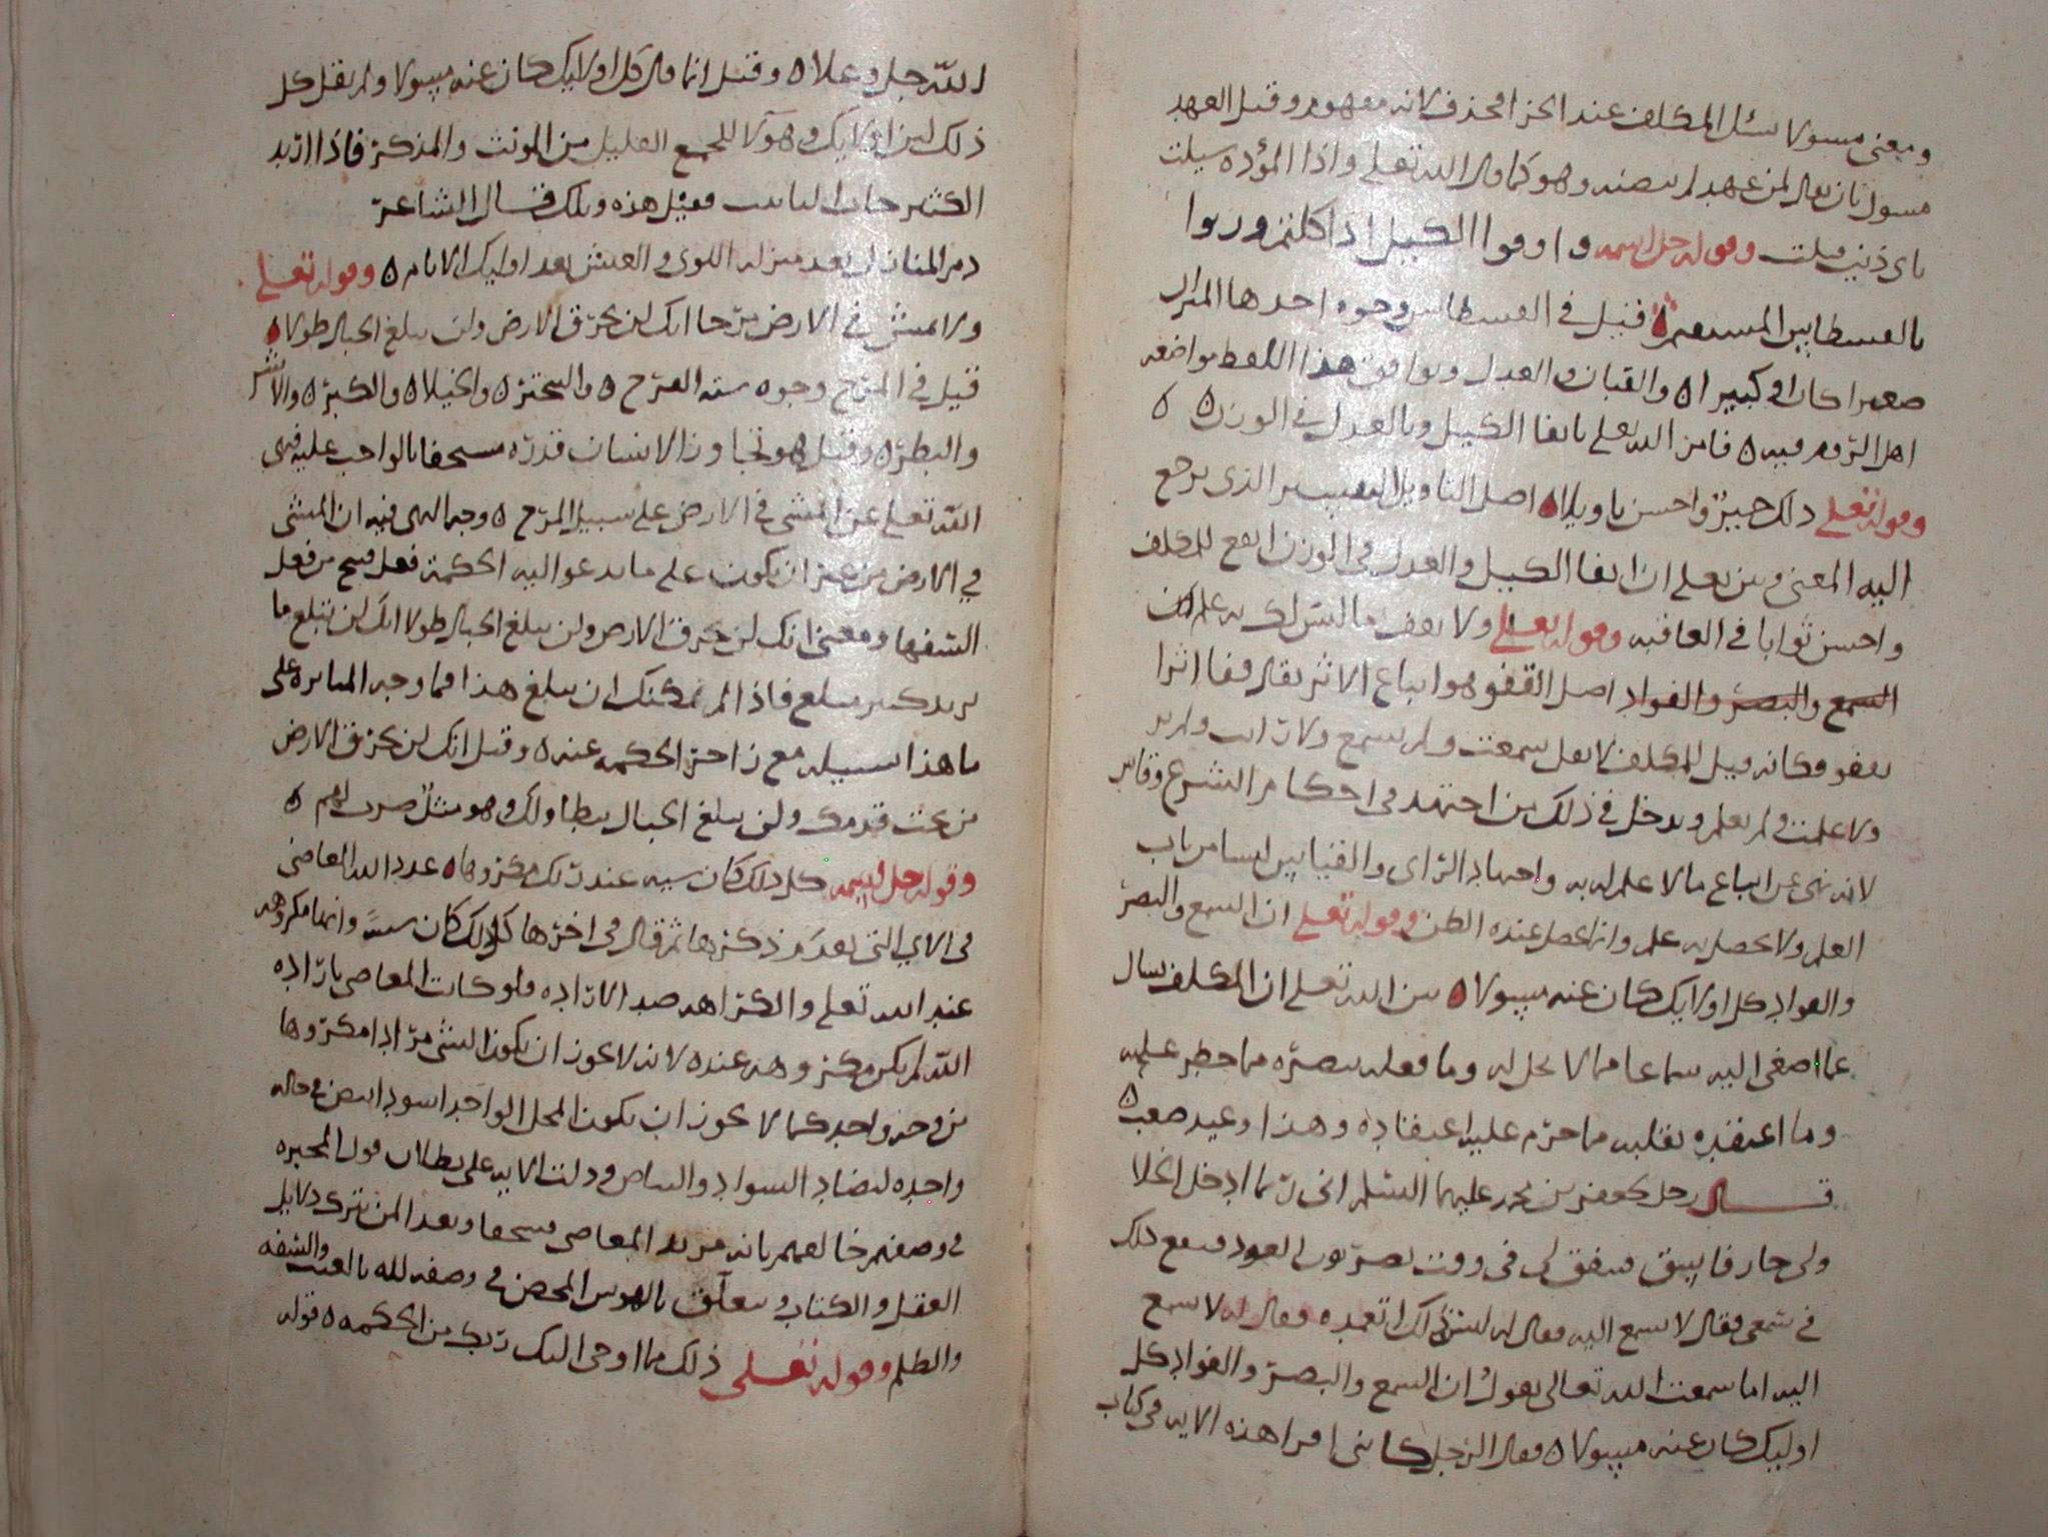 ومعنى مسولا سئل المكلف عند الجزا فحذف لانه مفهوم وقيل العهد
مسول بان يقال لمن عهد لم نقضته وهو كما قال الله تعلى واذا المؤدة سيلت
باي ذنب قتلت وقوله جل اسمه واوفوا الكيل اذا كلتم وزنوا
بالقسطاس المستقيم ه قيل في القسطاس وجوه احدها الميزان
صغيرا كان او كبيرا ه والقبان والعدل وتوافق هذا اللفظ مواضعه
اهل الروم فيه ه فامر الله تعلى بايفا الكيل وبالعدل في الوزن ه ه
وقوله تعلى ذلك خير واحسن تاويلا ه اصل التاويل التفسير الذي يرجع
اليه المعنى وبين تعلى ان ايفا الكيل والعدل في الوزن انفع للمكلف
واحسن ثوابا في العاقبه وقوله تعلى ولا تقف ما ليس لك به علم ان
السمع والبصر والفواد اصل القفو هو اتباع الاثر يقال قفا اثرا
يقفو فكانه قيل للمكلف لا تقل سمعت ولم تسمع ولا رايت ولم تر
ولا علمت ولم تعلم ويدخل في ذلك من اجتهد في احكام الشرع وقاس
لانه نهى عن اتباع ما لا علم له به واجتهاد الراي والقياس ليسا من باب
العلم ولا يحصل به علم وانما يحصل عنده الظن وقوله تعلى ان السمع والبصر
والفواد كل اولايك كان عنه مسولا ه بين الله تعلى ان المكلف يسال
عما اصغى اليه سماعا مما لا يحل له وما فعله ببصره مما حظر عليه
وما اعتقده بقلبه مما حرم عليه اعتقاده وهذا وعيد صعب ه
قال رجل لجعفر بن محمد عليهما السلم اني ربما ادخل الخلا
ولي جار فاسق فيتفق لي في وقت العود فيقع ذلك
في سمعي فقال لا تسمع اليه فقال له ليس ذلك اتعمده فقال له لا تسمع
اليه اما سمعت الله تعالى يقول ان السمع والبصر والفواد كل
اوليك كان عنه مسولا ه فقال الرجل كاني لم اقرا هذه الايه في كتاب
الله جل وعلا ه وقيل انما قال كل اولايك كان عنه مسولا ولم يقل كل
ذلك لان اولايك وهؤلا للجمع القليل من المونث والمذكر فاذا اريد
الكثير جات التانيث فقيل هذه وتلك قال الشاعر
ذم المنازل بعد منزلة اللوى والعيش بعد اوليك الايام ه وقوله تعلى
ولا تمش في الارض مرحا انك لن تخرق الارض ولن تبلغ الجبال طولا ه
قيل في المرح وجوه منه الفرح ه والتبختر ه والخيلا ه والكبر ه والاشر
والبطر ه وقيل هو تجاوز الانسان قدره مستخفا بالواجب عليه فنهى
الله تعلى عن المشي في الارض على سبيل المرح ه وجه النهي فيه ان المشي
في الارض من غير ان يكون على ما تدعو اليه الحكمة فعل قبيح من فعل
السفها ومعنى انك لن تخرق الارض ولن تبلغ الجبال طولا انك لن تبلغ ما
تريد كبير مبلغ فاذا لم يمكنك ان تبلغ هذا فما وجه المثابرة على
ما هذا سبيله مع زاجر الحكمه عنه ه وقيل انك لن تخرق الارض
من تحت قدمك ولن تبلغ الجبال بتطاولك وهو مثل ضرب لهم ه
وقوله جل اسمه كل ذلك كان سيه عند ربك مكروها ه عدد الله المعاصي
في الاي التي تقدم ذكرها ثم قال في اخرها كل ذلك كان سيئه وانها مكروهه
عند الله تعلى والكراهه ضد الاراده ولو كانت المعاصي باراده
الله لم يكن مكروهه عنده لانه لا يجوز ان يكون الشي مرادا مكروها
من وجه واحد كما لا يجوز ان يكون المحل الواحد اسود ابيض في حاله
واحده لتضاد السواد والبياض ودلت الايه على بطلان قول المجبره
في وصفهم خالقهم بانه مريد المعاصي فسحقا وبعدا لمن ترك دلايل
العقل والكتاب وتعلق بالهوس المحض في وصفه لله بالعبث والسفه
والظلم وقوله تعلى ذلك مما اوحى اليك ربك من الحكمه ه قوله